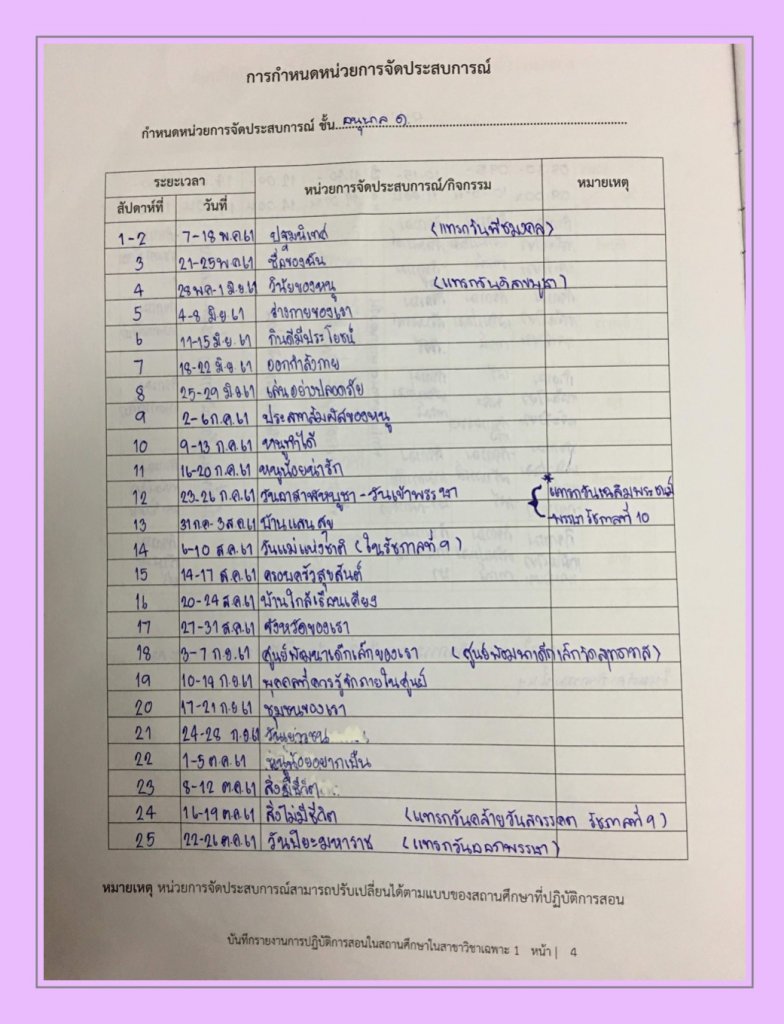 การกำหนดหน่วยการจัดประสบการณ์
กำหนดหน่วยการจัดประสบการณ์ ชั้น....อนุบาล ๑....
ระยะเวลา หน่วยการจัดประสบการณ์/กิจกรรม หมายเหตุ
สัปดาห์ที่ วันที่
1-2 7-18 พ.ค 61 ปฐมนิเทศ (แทรกวันพืชมงคล)
3 21-25 พ.ค 61 ชื่อของฉัน
4 28 พ.ค-1 มิ.ย 61 วินัยของหนู (แทรกวันวิสาขบูชา)
5 4-8 มิ.ย 61 ร่างกายของเรา
6 11-15 มิ.ย. 61 กินดีมีประโยชน์
7 18-22 มิ.ย 61 ออกกำลังกาย
8 25-29 มิ.ย 61 เล่นอย่างปลอดภัย
9 2-6 ก.ค. 61 ประสาทสัมผัสของหนู
10 9-13 ก.ค 61 หนูทำได้
11 16-20 ก.ค 61 หนูน้อยน่ารัก
12 23-26 ก.ค 61 วันอาสาฬหบูชา-วันเข้าพรรษา *แทรกวันเฉลิมพระชนม์
13 31 ก.ค-3 ส.ค 61 บ้านแสนสุข พรรษา รัชกาลที่ 10
14 6-10 ส.ค 61 วันแม่แห่งชาติ (ในรัชกาลที่ 9)
15 14-17 ส.ค 61 ครอบครัวสุขสันต์
16 20-24 ส.ค 61 บ้านใกล้เรือนเคียง
17 27-31 ส.ค 61 จังหวัดของเรา
18 3-7 ก.ย. 61 ศูนย์พัฒนาเด็กเล็กของเรา (ศูนย์พัฒนาเด็กเล็กวัด
19 10-14 ก.ย 61 บุคคลที่ควรรู้จักภายในศูนย์
20 17-21 ก.ย 61 ชุมชนของเรา
21 24-28 ก.ย 61 วันเยาวชน
22 1-5 ต.ค. 61 หนูน้อยอยากเป็น
23 8-12 ต.ค. 61 สิ่งมีชีวิต
24 16-19 ต.ค 61 สิ่งไม่มีชีวิต (แทรกวันคล้ายวันสวรรคต รัชกาลที่ 9)
25 22-26 ต.ค. 61 วันปิยะมหาราช (แทรกวันออกพรรษา)
หมายเหตุ หน่วยการจัดประสบการณ์สามารถปรับเปลี่ยนได้ตามแบบของสถานศึกษาที่ปฏิบัติการสอน
บันทึกรายงานการปฏิบัติการสอนในสถานศึกษาในสาขาวิชาเฉพาะ 1 หน้า | 4